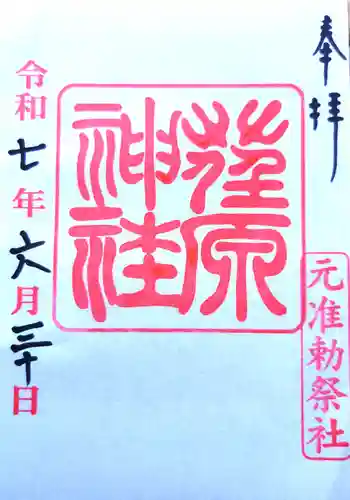 奉拝
元准勅祭社
荏原
神社
令和七年六月三十日